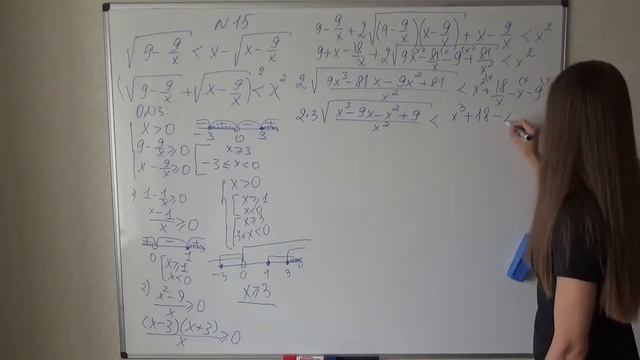 N 15
√(9 - 9/x) < x - √(x - 9/x)
(√(9 - 9/x) + √(x - 9/x))² < x²
ОДЗ:
{ x > 0
9 - 9/x ⩾ 0
x - 9/x ⩾ 0
-3 0 3
[ x ⩾ 3
-3 ⩽ x < 0
1) 1 - 1/x ⩾ 0
(x - 1)/x ⩾ 0
+ - +
0 1
[ x ⩾ 1
x < 0
2) (x² - 9)/x ⩾ 0
(x-3)(x+3)/x ⩾ 0
{ x > 0
[ x ⩾ 1
x < 0
[ x ⩾ 3
-3 ⩽ x < 0
-3 0 1 3
x ⩾ 3
9 - 9/x + 2√((9 - 9/x)(x - 9/x)) + x - 9/x < x²
9 + x - 18/x + 2√(9x - 81/x - 9 + 81/x²) < x²
2√((9x³ - 81x - 9x² + 81)/x²) < x² + 18/x - x - 9
2·3√((x³ - 9x - x² + 9)/x²) < x³ + 18 -